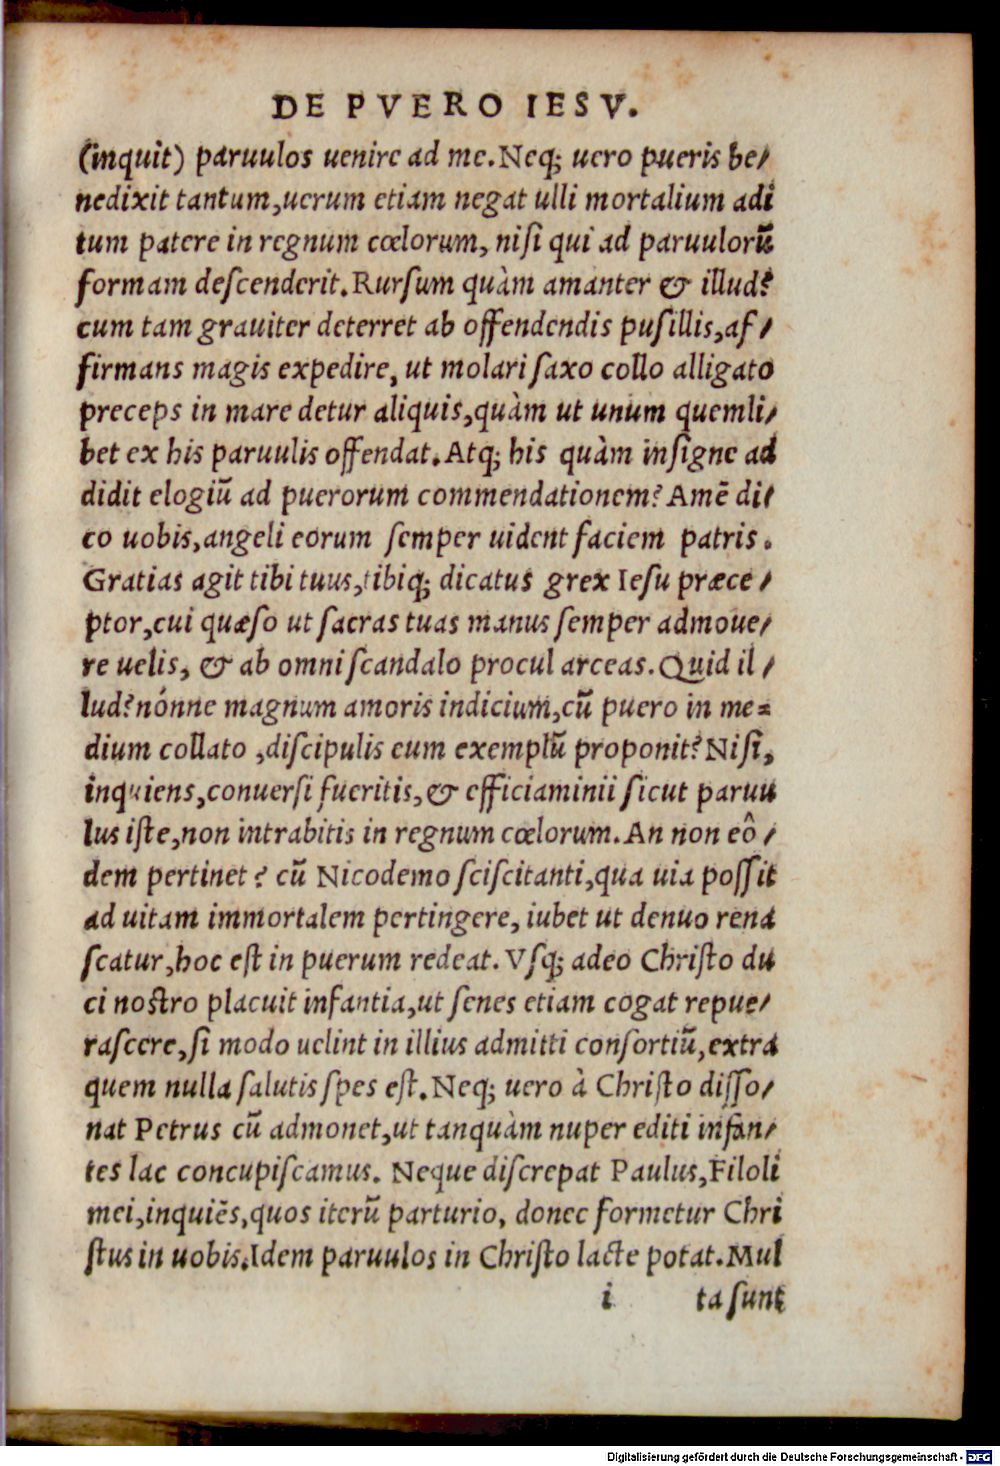 DE PVERO IESV.
(inquit) paruulos uenire ad me. Neq; uero pueris be/
nedixit tantum, uerum etiam negat ulli mortalium adi
tum patere in regnum cœlorum, nisi qui ad paruulorū
formam descenderit. Rursum quàm amanter & illud?
cum tam grauiter deterret ab offendendis pusillis, af/
firmans magis expedire, ut molari saxo collo alligato
preceps in mare detur aliquis, quàm ut unum quemli/
bet ex his paruulis offendat. Atq; his quàm insigne ad
didit elogiū ad puerorum commendationem? Amē di/
co uobis, angeli eorum semper uident faciem patris.
Gratias agit tibi tuus, tibiq; dicatus grex Iesu præce/
ptor, cui quæso ut sacras tuas manus semper admoue/
re uelis, & ab omni scandalo procul arceas. Quid il/
lud? nónne magnum amoris indicium, cū puero in me=
dium collato, discipulis eum exemplū proponit? Nisi,
inquiens, conuersi fueritis, & efficiaminii sicut paruu
lus iste, non intrabitis in regnum cœlorum. An non eô/
dem pertinet? cū Nicodemo sciscitanti, qua uia possit
ad uitam immortalem pertingere, iubet ut denuo rena
scatur, hoc est in puerum redeat. Vsq; adeo Christo du
ci nostro placuit infantia, ut senes etiam cogat repue/
rascere, si modo uelint in illius admitti consortiū, extra
quem nulla salutis spes est. Neq; uero à Christo disso/
nat Petrus cū admonet, ut tanquàm nuper editi infan/
tes lac concupiscamus. Neque discrepat Paulus, Filoli
mei, inquiēs, quos iterū parturio, donec formetur Chri
stus in uobis. Idem paruulos in Christo lacte potat. Mul
i ta sunt
Digitalisierung gefördert durch die Deutsche Forschungsgemeinschaft - DFG